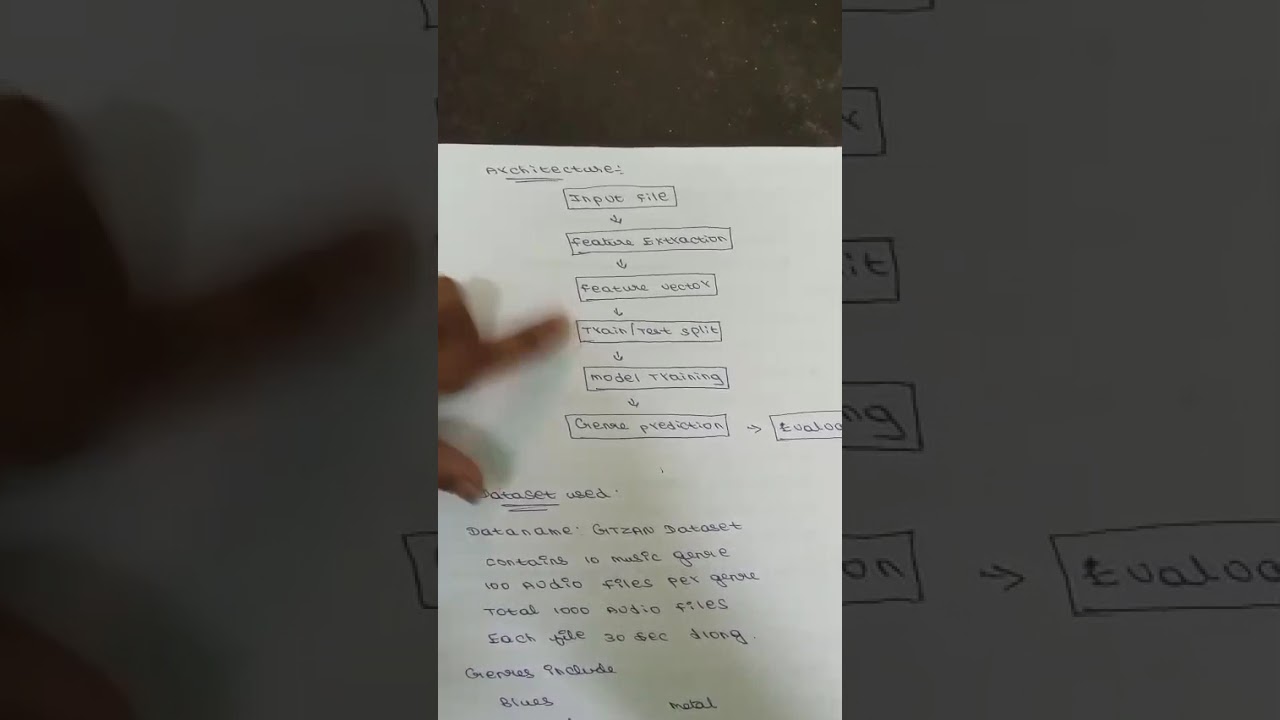 Architecture:-
Input file
↓
Feature Extraction
↓
Feature vector
↓
Train/Test split
↓
Model Training
↓
Genre prediction →
Dataset used:
Dataname: GTZAN Dataset
contains 10 music genre
100 Audio files per genre
Total 1000 Audio files
Each file 30 sec
Genres include
Blues metal